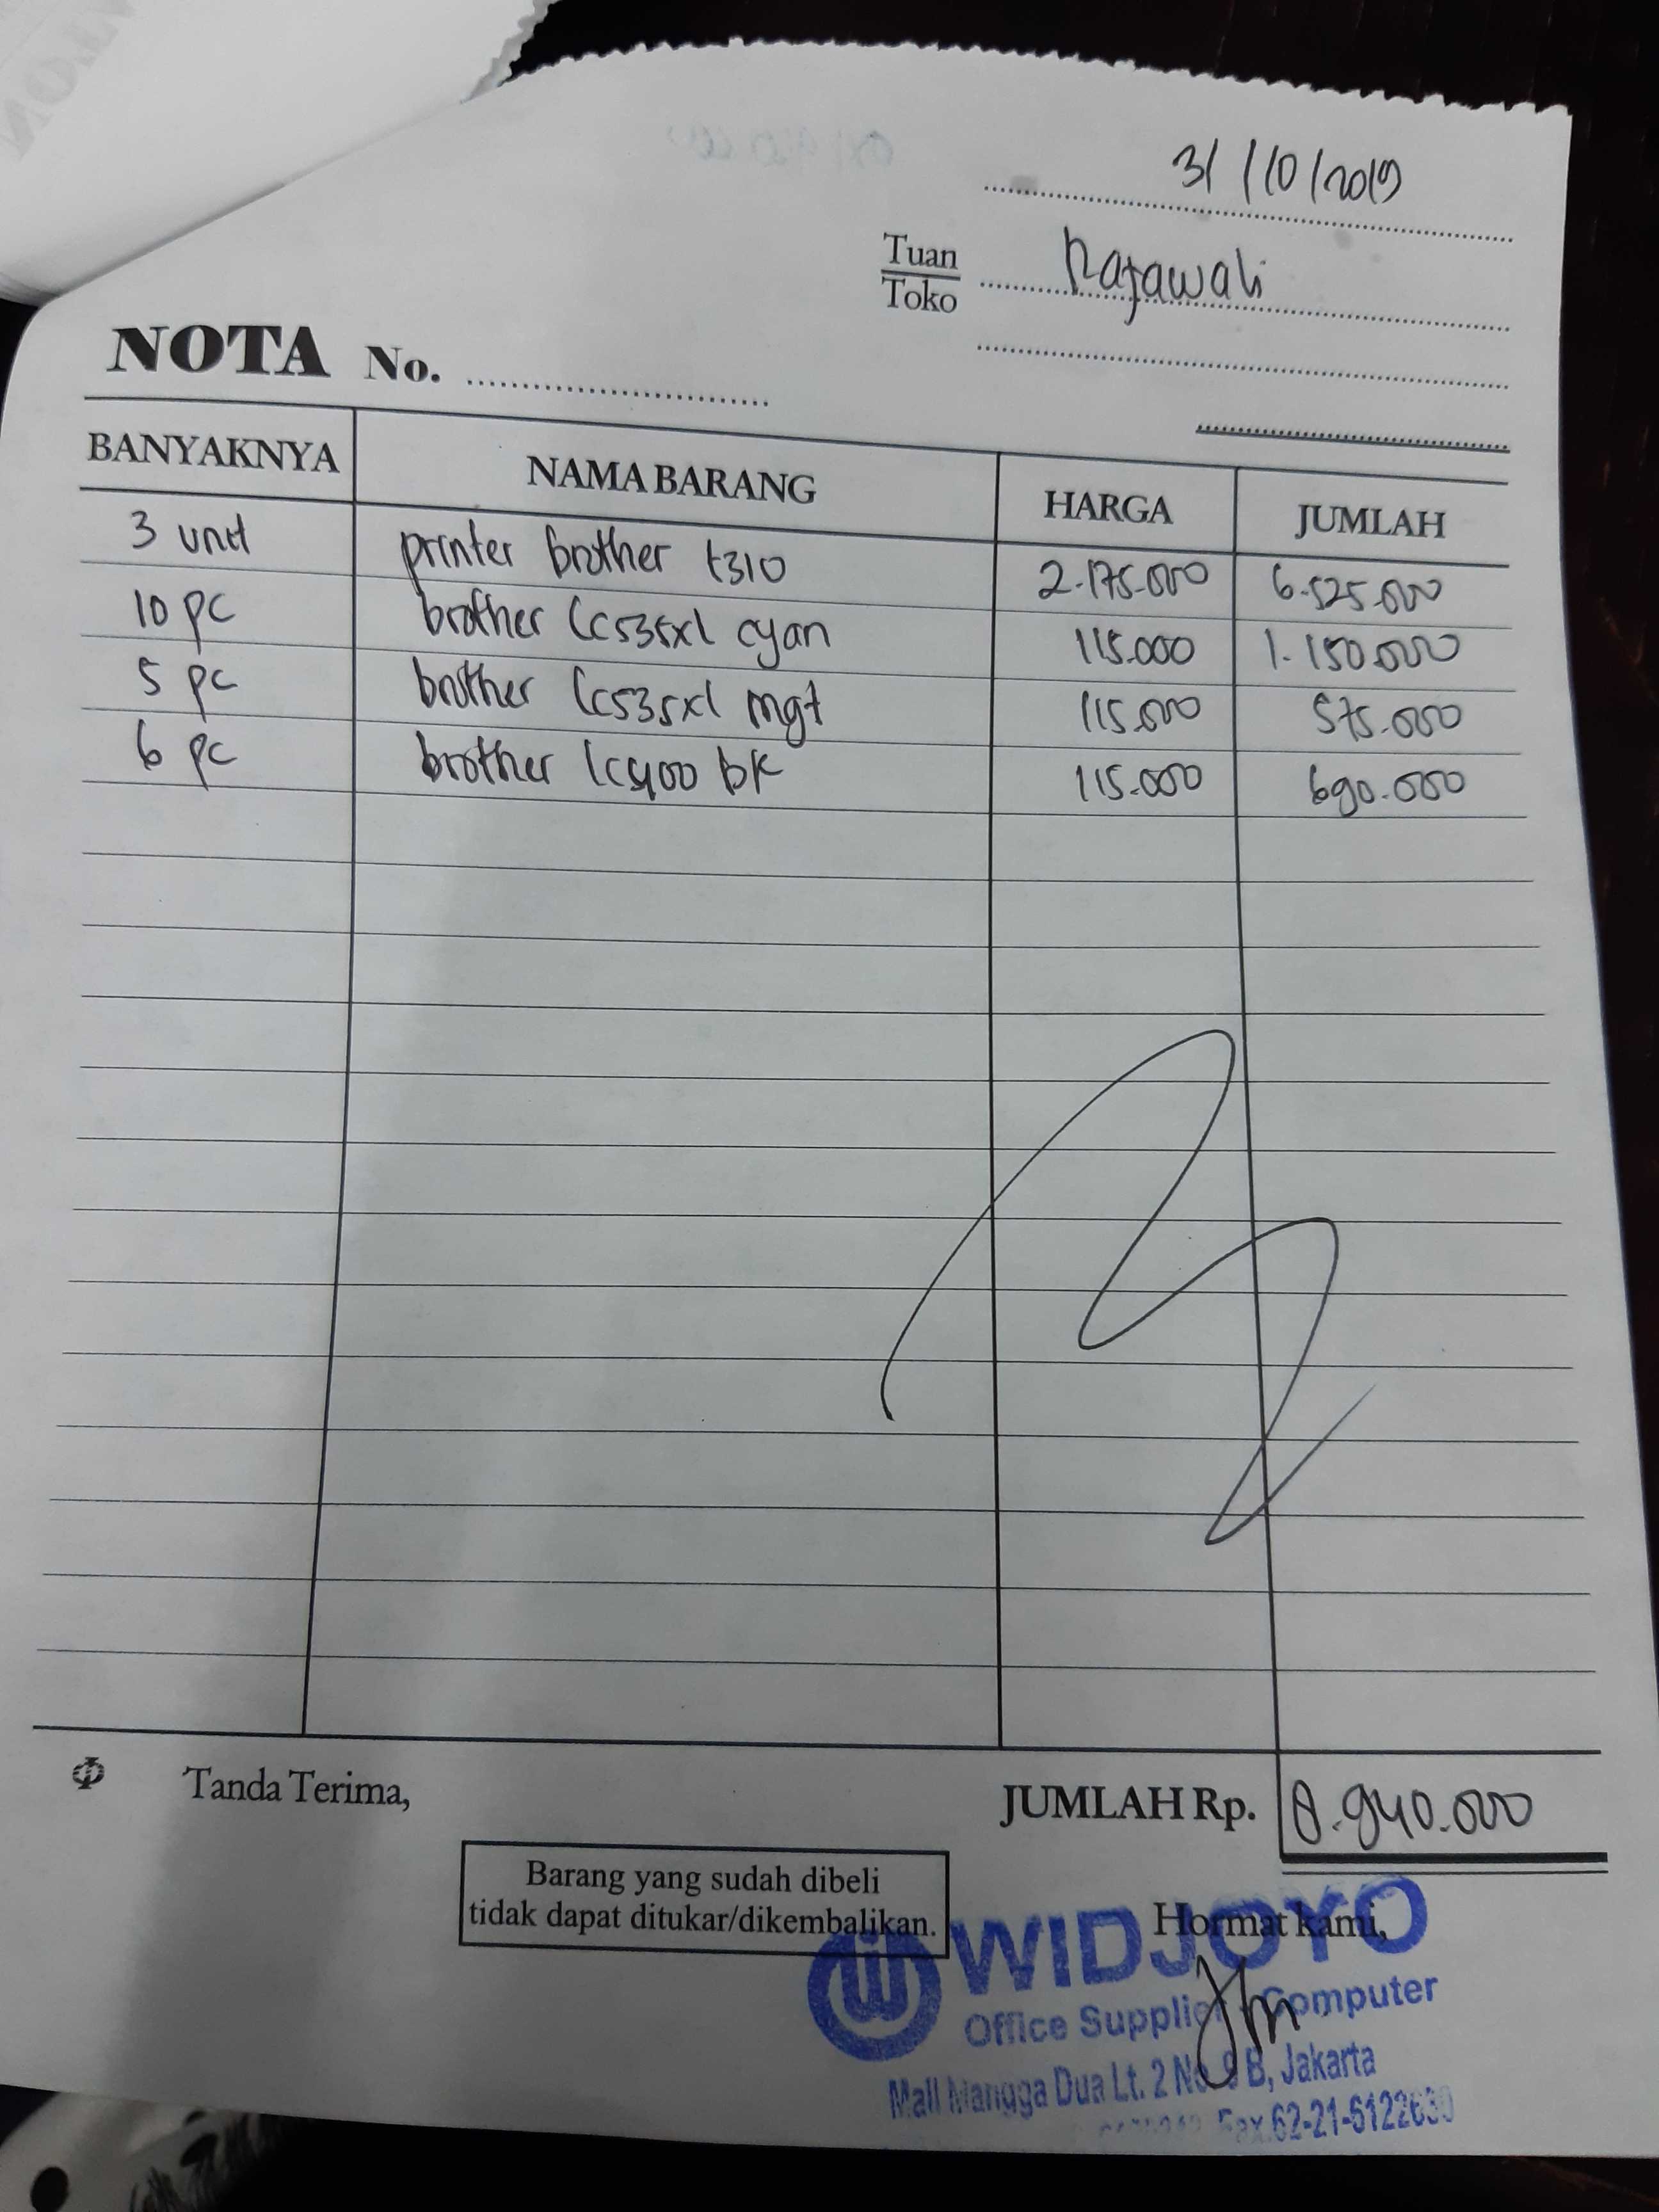 31/10/2019
Tuan
Toko
Rajawali
NOTA No.
BANYAKNYA NAMA BARANG HARGA JUMLAH
3 unit printer brother t310 2.175.000 6.525.000
10 pc brother lc535xl cyan 115.000 1.150.000
5 pc brother lc535xl mgt 115.000 575.000
6 pc brother lc400 bk 115.000 690.000
Tanda Terima, JUMLAH Rp. 8.940.000
Barang yang sudah dibeli
tidak dapat ditukar/dikembalikan.
Hormat kami,
WIDJOYO
Office Supplies Computer
Mall Mangga Dua Lt. 2 No. 9 B, Jakarta
Fax.62-21-6122630